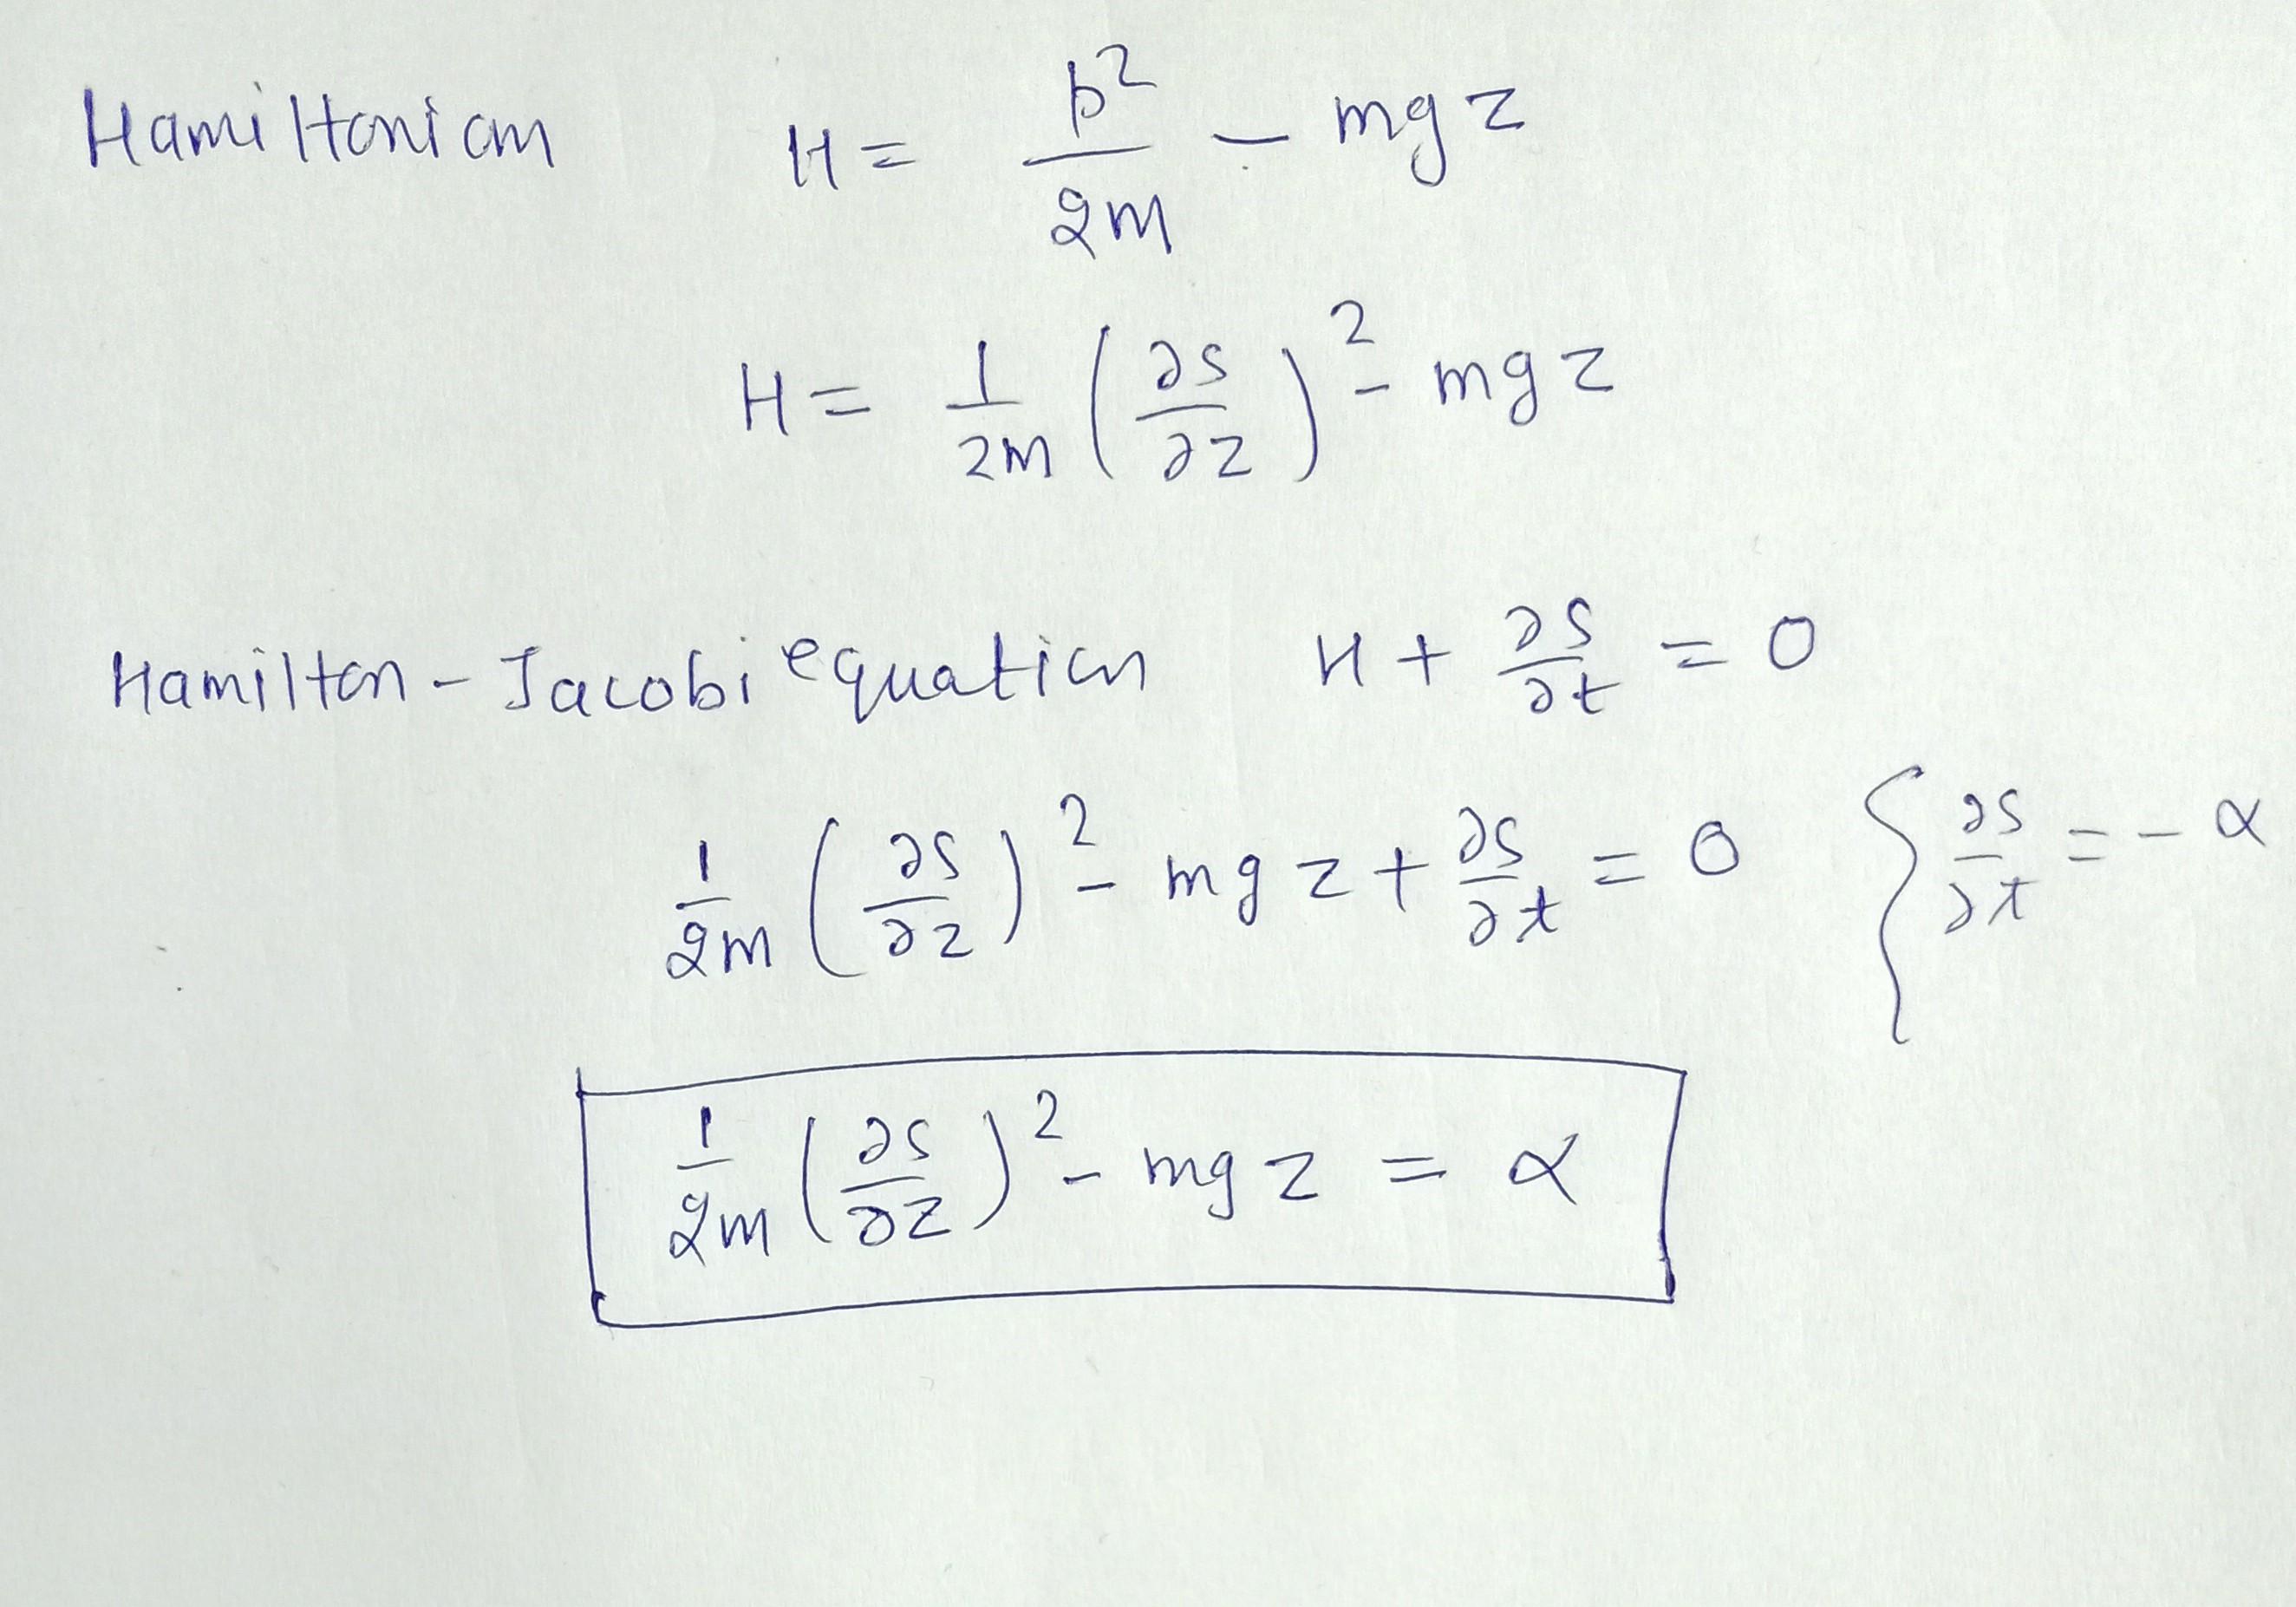 Hamiltonian H = p²/2m - mgz
H = 1/2m (∂S/∂z)² - mgz
Hamilton-Jacobi equation H + ∂S/∂t = 0
1/2m (∂S/∂z)² - mgz + ∂S/∂t = 0 { ∂S/∂t = -α
1/2m (∂S/∂z)² - mgz = α